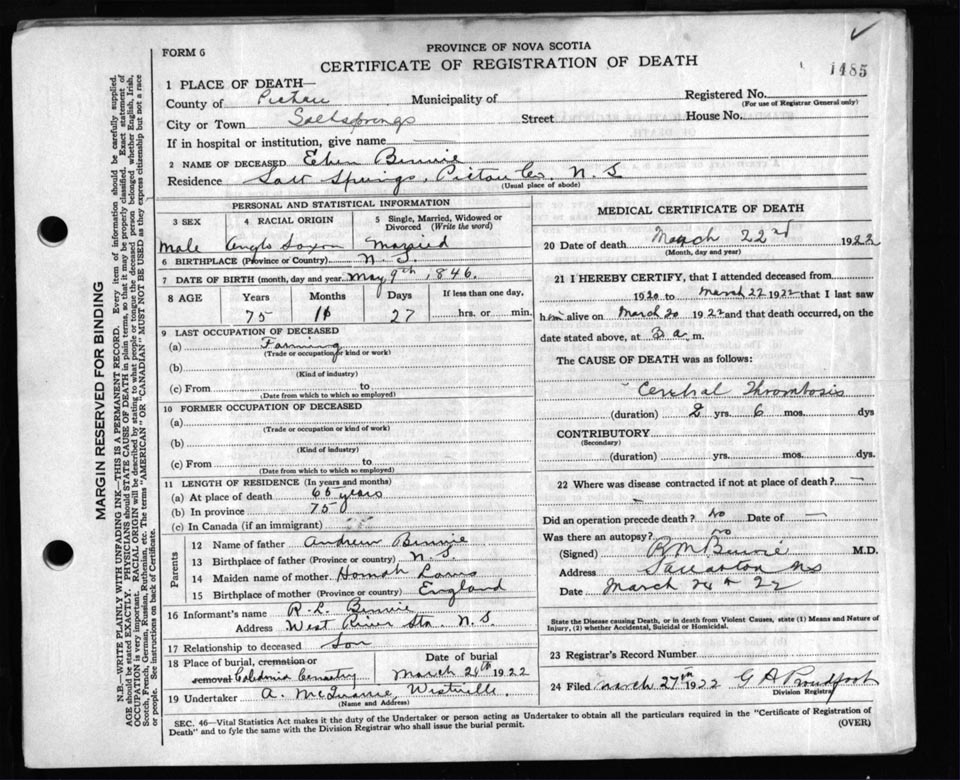 FORM 6
PROVINCE OF NOVA SCOTIA
CERTIFICATE OF REGISTRATION OF DEATH
1485
1 PLACE OF DEATH—
County of Pictou Municipality of
Registered No.
(For use of Registrar General only)
City or Town Saltsprings Street House No.
If in hospital or institution, give name
2 NAME OF DECEASED Eben Binnie
Residence Salt Springs, Pictou Co. N. S
(Usual place of abode)
PERSONAL AND STATISTICAL INFORMATION
3 SEX 4 RACIAL ORIGIN 5 Single, Married, Widowed or Divorced (Write the word)
Male Anglo Saxon Married
6 BIRTHPLACE (Province or Country) N. S.
7 DATE OF BIRTH (month, day and year) May 9th, 1846.
8 AGE Years Months Days If less than one day,
75 27 hrs. or min.
9 LAST OCCUPATION OF DECEASED
(a) Farming
(Trade or occupation or kind or work)
(b)
(Kind of industry)
(c) From to
(Date from which to which so employed)
10 FORMER OCCUPATION OF DECEASED
(a)
(Trade or occupation or kind of work)
(b)
(Kind of industry)
(c) From to
(Date from which to which so employed)
11 LENGTH OF RESIDENCE (In years and months)
(a) At place of death 65 years
(b) In province 75
(c) In Canada (if an immigrant)
Parents
12 Name of father Andrew Binnie
13 Birthplace of father (Province or country) N. S.
14 Maiden name of mother
15 Birthplace of mother (Province or country) England
16 Informant's name R. L. Binnie
Address West River Sta. N. S.
17 Relationship to deceased Son
18 Place of burial, cremation or removal Caledonia Cemetery
Date of burial
March 24th 1922
19 Undertaker A. McQuarrie, Westville.
(Name and Address)
MEDICAL CERTIFICATE OF DEATH
20 Date of death March 22nd 1922
(Month, day and year)
21 I HEREBY CERTIFY, that I attended deceased from
1920 to March 22 1922 that I last saw
him alive on March 20 1922 and that death occurred, on the
date stated above, at 3 a. m.
The CAUSE OF DEATH was as follows:
Cerebral Thrombosis
(duration) 2 yrs. 6 mos. dys
CONTRIBUTORY
(Secondary)
(duration) yrs. mos. dys.
22 Where was disease contracted if not at place of death? —
—
Did an operation precede death? No Date of —
Was there an autopsy? no
(Signed) Binnie M.D.
Address Stellarton NS
Date March 24th 22
State the Disease causing Death, or in death from Violent Causes, state (1) Means and Nature of
Injury, (2) whether Accidental, Suicidal or Homicidal.
23 Registrar's Record Number
24 Filed March 27th 1922 G A Proudfoot
Division Registry
SEC. 46—Vital Statistics Act makes it the duty of the Undertaker or person acting as Undertaker to obtain all the particulars required in the "Certificate of Registration of
Death" and to fyle the same with the Division Registrar who shall issue the burial permit.
(OVER)
MARGIN RESERVED FOR BINDING
N.B.—WRITE PLAINLY WITH UNFADING INK—THIS IS A PERMANENT RECORD. Every item of information should be carefully supplied.
AGE should be stated EXACTLY. PHYSICIANS should STATE CAUSE OF DEATH in plain terms, so that it may be properly classified. Exact statement of
OCCUPATION is very important. RACIAL ORIGIN will be described by stating to what people or tongue the deceased person belonged whether English, Irish,
Scotch, French, German, Russian, Ruthenian, etc. The terms "AMERICAN" OR "CANADIAN" MUST NOT BE USED as they express citizenship but not a race
or people. See instructions on back of Certificate.